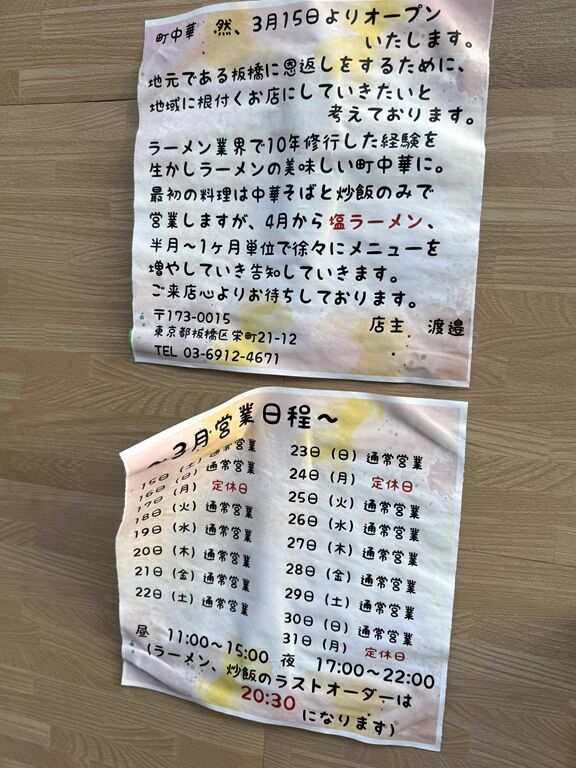 町中華 然、3月15日よりオープン
いたします。
地元である板橋に恩返しをするために、
地域に根付くお店にしていきたいと
考えております。
ラーメン業界で10年修行した経験を
生かしラーメンの美味しい町中華に。
最初の料理は中華そばと炒飯のみで
営業しますが、4月から塩ラーメン、
半月～1ヶ月単位で徐々にメニューを
増やしていき告知していきます。
ご来店心よりお待ちしております。
〒173-0015
店主 渡邉
東京都板橋区栄町21-12
TEL 03-6912-4671
～3月営業日程～
15日（土）通常営業
16日（日）通常営業
17日（月）定休日
18日（火）通常営業
19日（水）通常営業
20日（木）通常営業
21日（金）通常営業
22日（土）通常営業
23日（日）通常営業
24日（月）定休日
25日（火）通常営業
26日（水）通常営業
27日（木）通常営業
28日（金）通常営業
29日（土）通常営業
30日（日）通常営業
31日（月）定休日
昼 11:00～15:00 夜 17:00～22:00
(ラーメン、炒飯のラストオーダーは
20:30
になります)